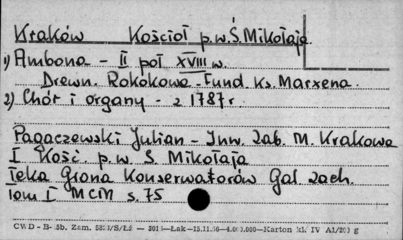 Kraków Kościoł p.w. Ś. Mikołaja
1) Ambona - II poł XVIII w.
Drewn. Rokokowa Fund. Ks. Marxena.
2) Chór i organy - z 1787 r.
Pagaczewski Julian - Inw. Zab. M. Krakowa
I Kość. p.w. S. Mikołaja
Teka Grona Konserwatorów Gal zach.
tom I MCM s. 75
CWD - B. Zam. - Łak - 15.11.56 - - Karton kl. IV A1/200 g